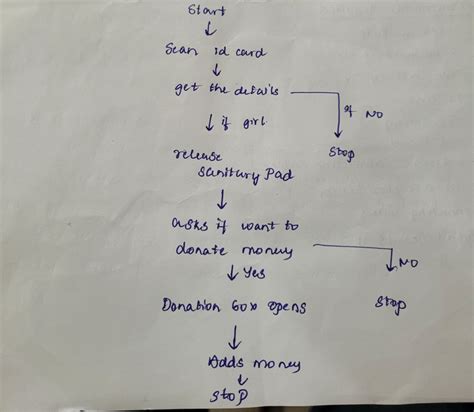 Start
Scan id card
get the details
if No
if girl
Stop
release
sanitary Pad
asks if want to
donate money
No
Yes
Donation box opens
Stop
Adds money
Stop